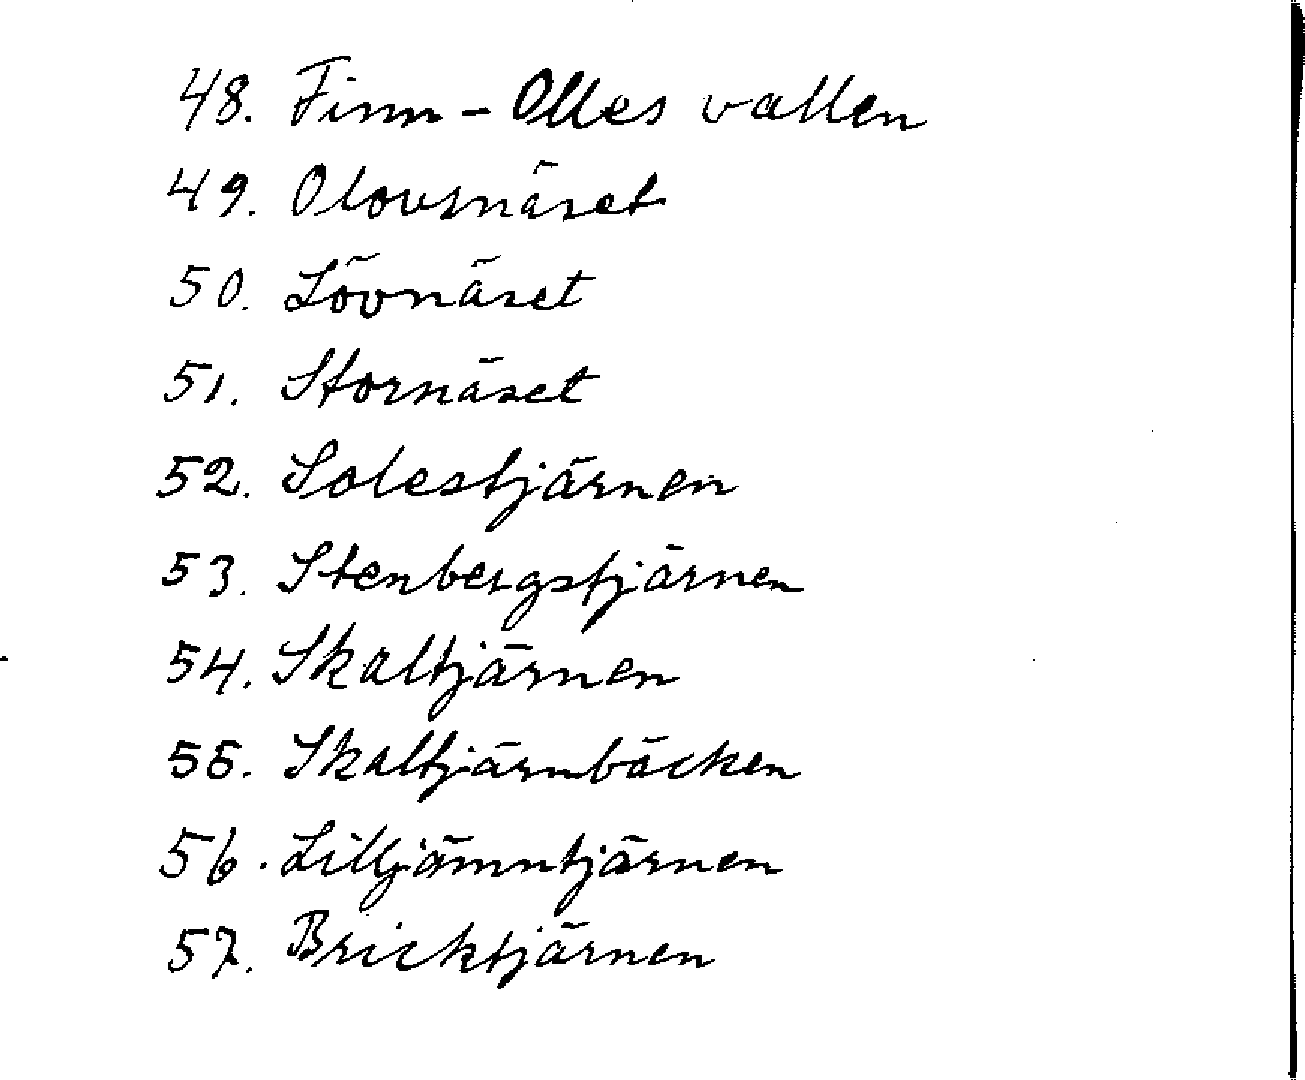 48. Finn - Olles vallen
49. Olovsnäset
50. Lövnäset
51. Stornäset
52. Solestjärnen
53. Stenbergstjärnen
54. Skaltjärnen
55. Skaltjärnbäcken
56. Lilljämntjärnen
57. Bricktjärnen